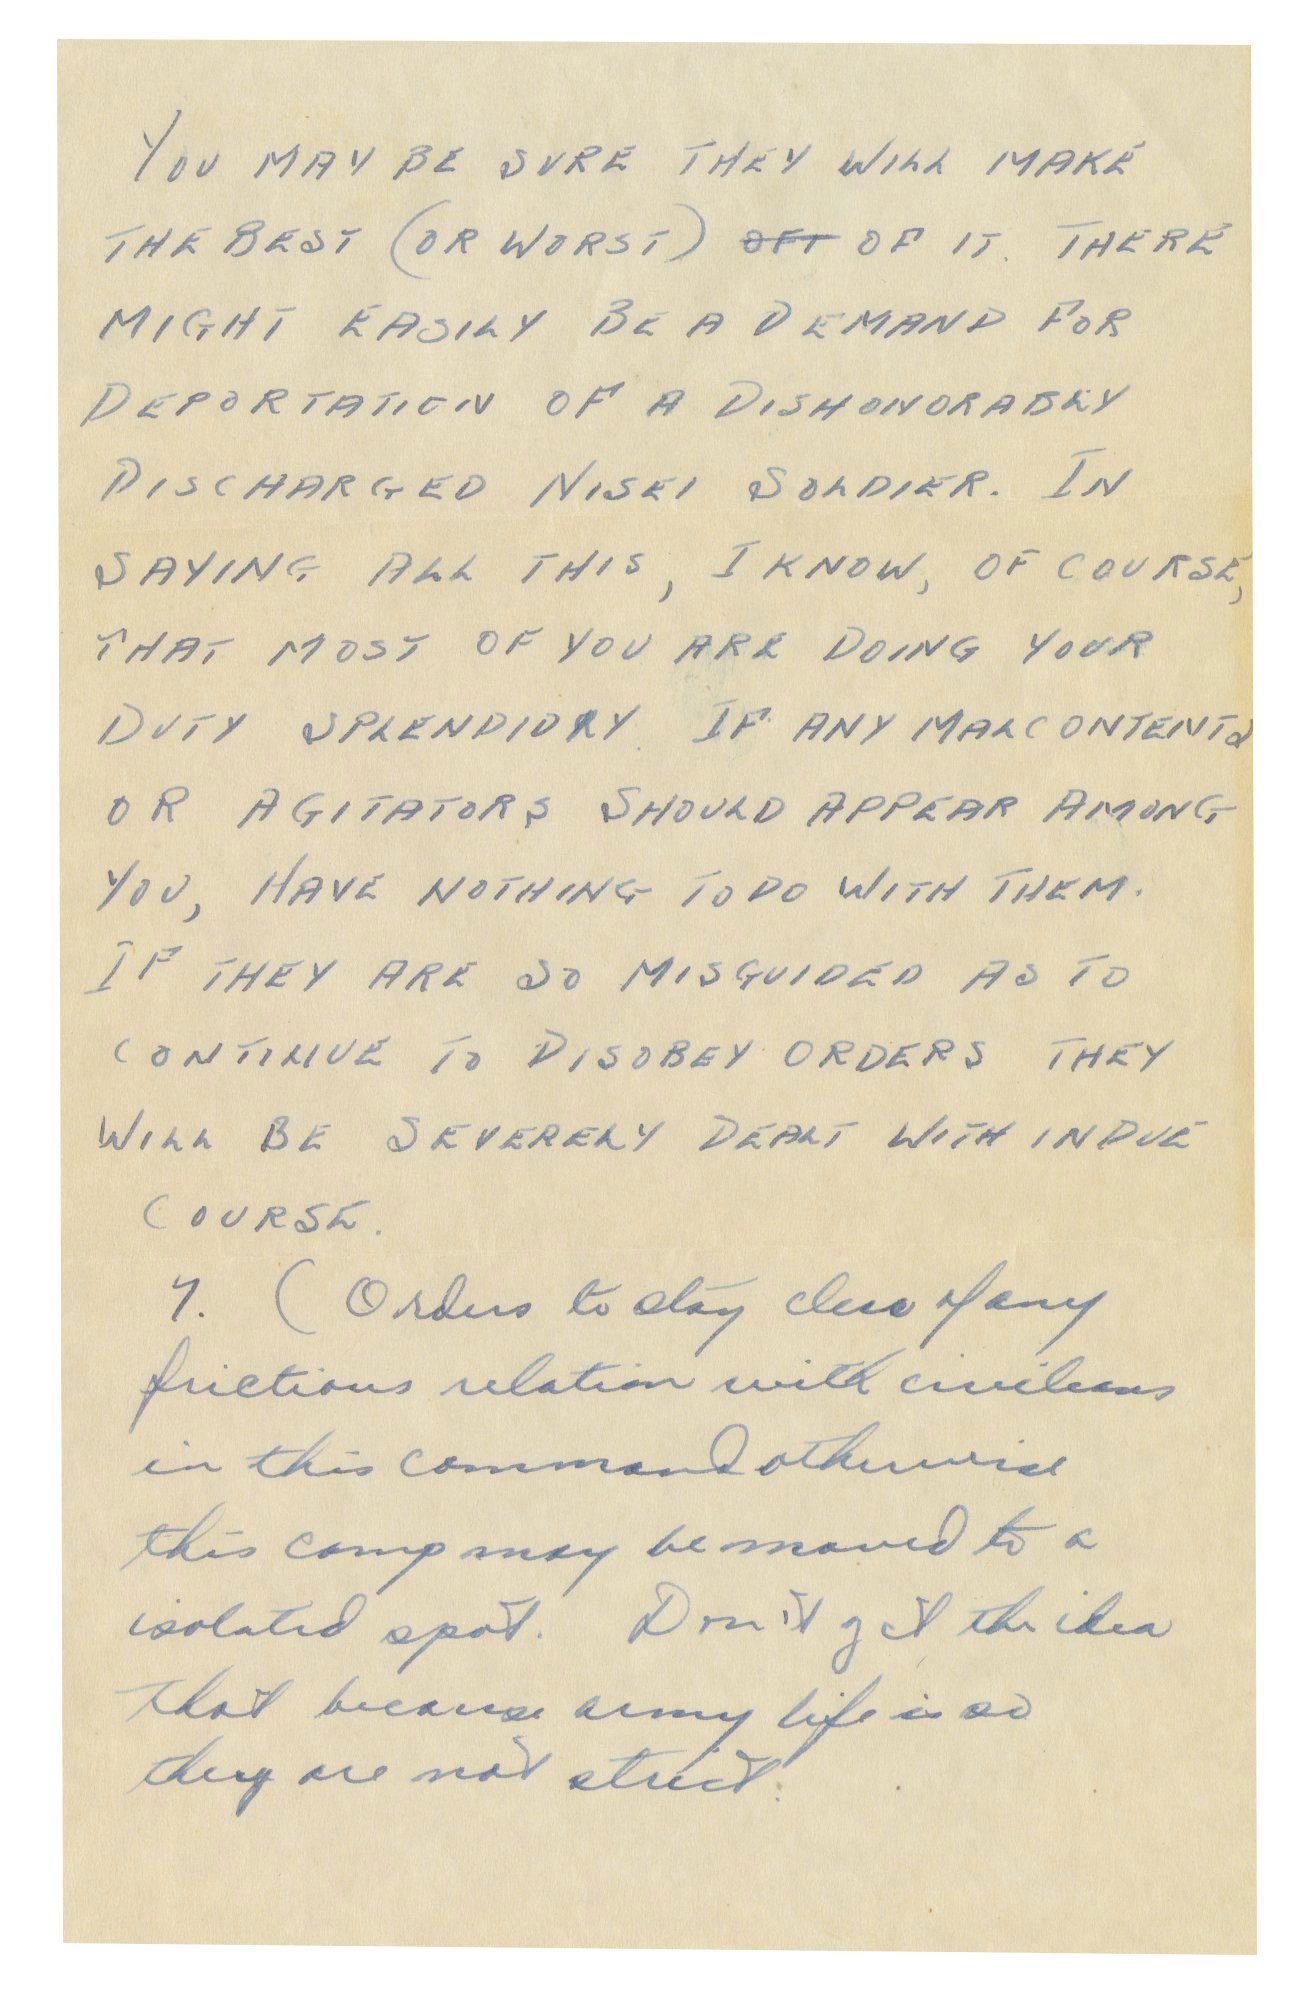 YOU MAY BE SURE THEY WILL MAKE
THE BEST (OR WORST) OFT OF IT. THERE
MIGHT EASILY BE A DEMAND FOR
DEPORTATION OF A DISHONORABLY
DISCHARGED NISEI SOLDIER. IN
SAYING ALL THIS, I KNOW, OF COURSE,
THAT MOST OF YOU ARE DOING YOUR
DUTY SPLENDIDLY. IF ANY MALCONTENTS
OR AGITATORS SHOULD APPEAR AMONG
YOU, HAVE NOTHING TO DO WITH THEM.
IF THEY ARE SO MISGUIDED AS TO
CONTINUE TO DISOBEY ORDERS THEY
WILL BE SEVERELY DEALT WITH IN DUE
COURSE.
7. (Orders to stay clear of any
frictious relation with civilians
in this command otherwise
this camp may be moved to a
isolated spot. Don't get the idea
that because army life is so
they are not strict.